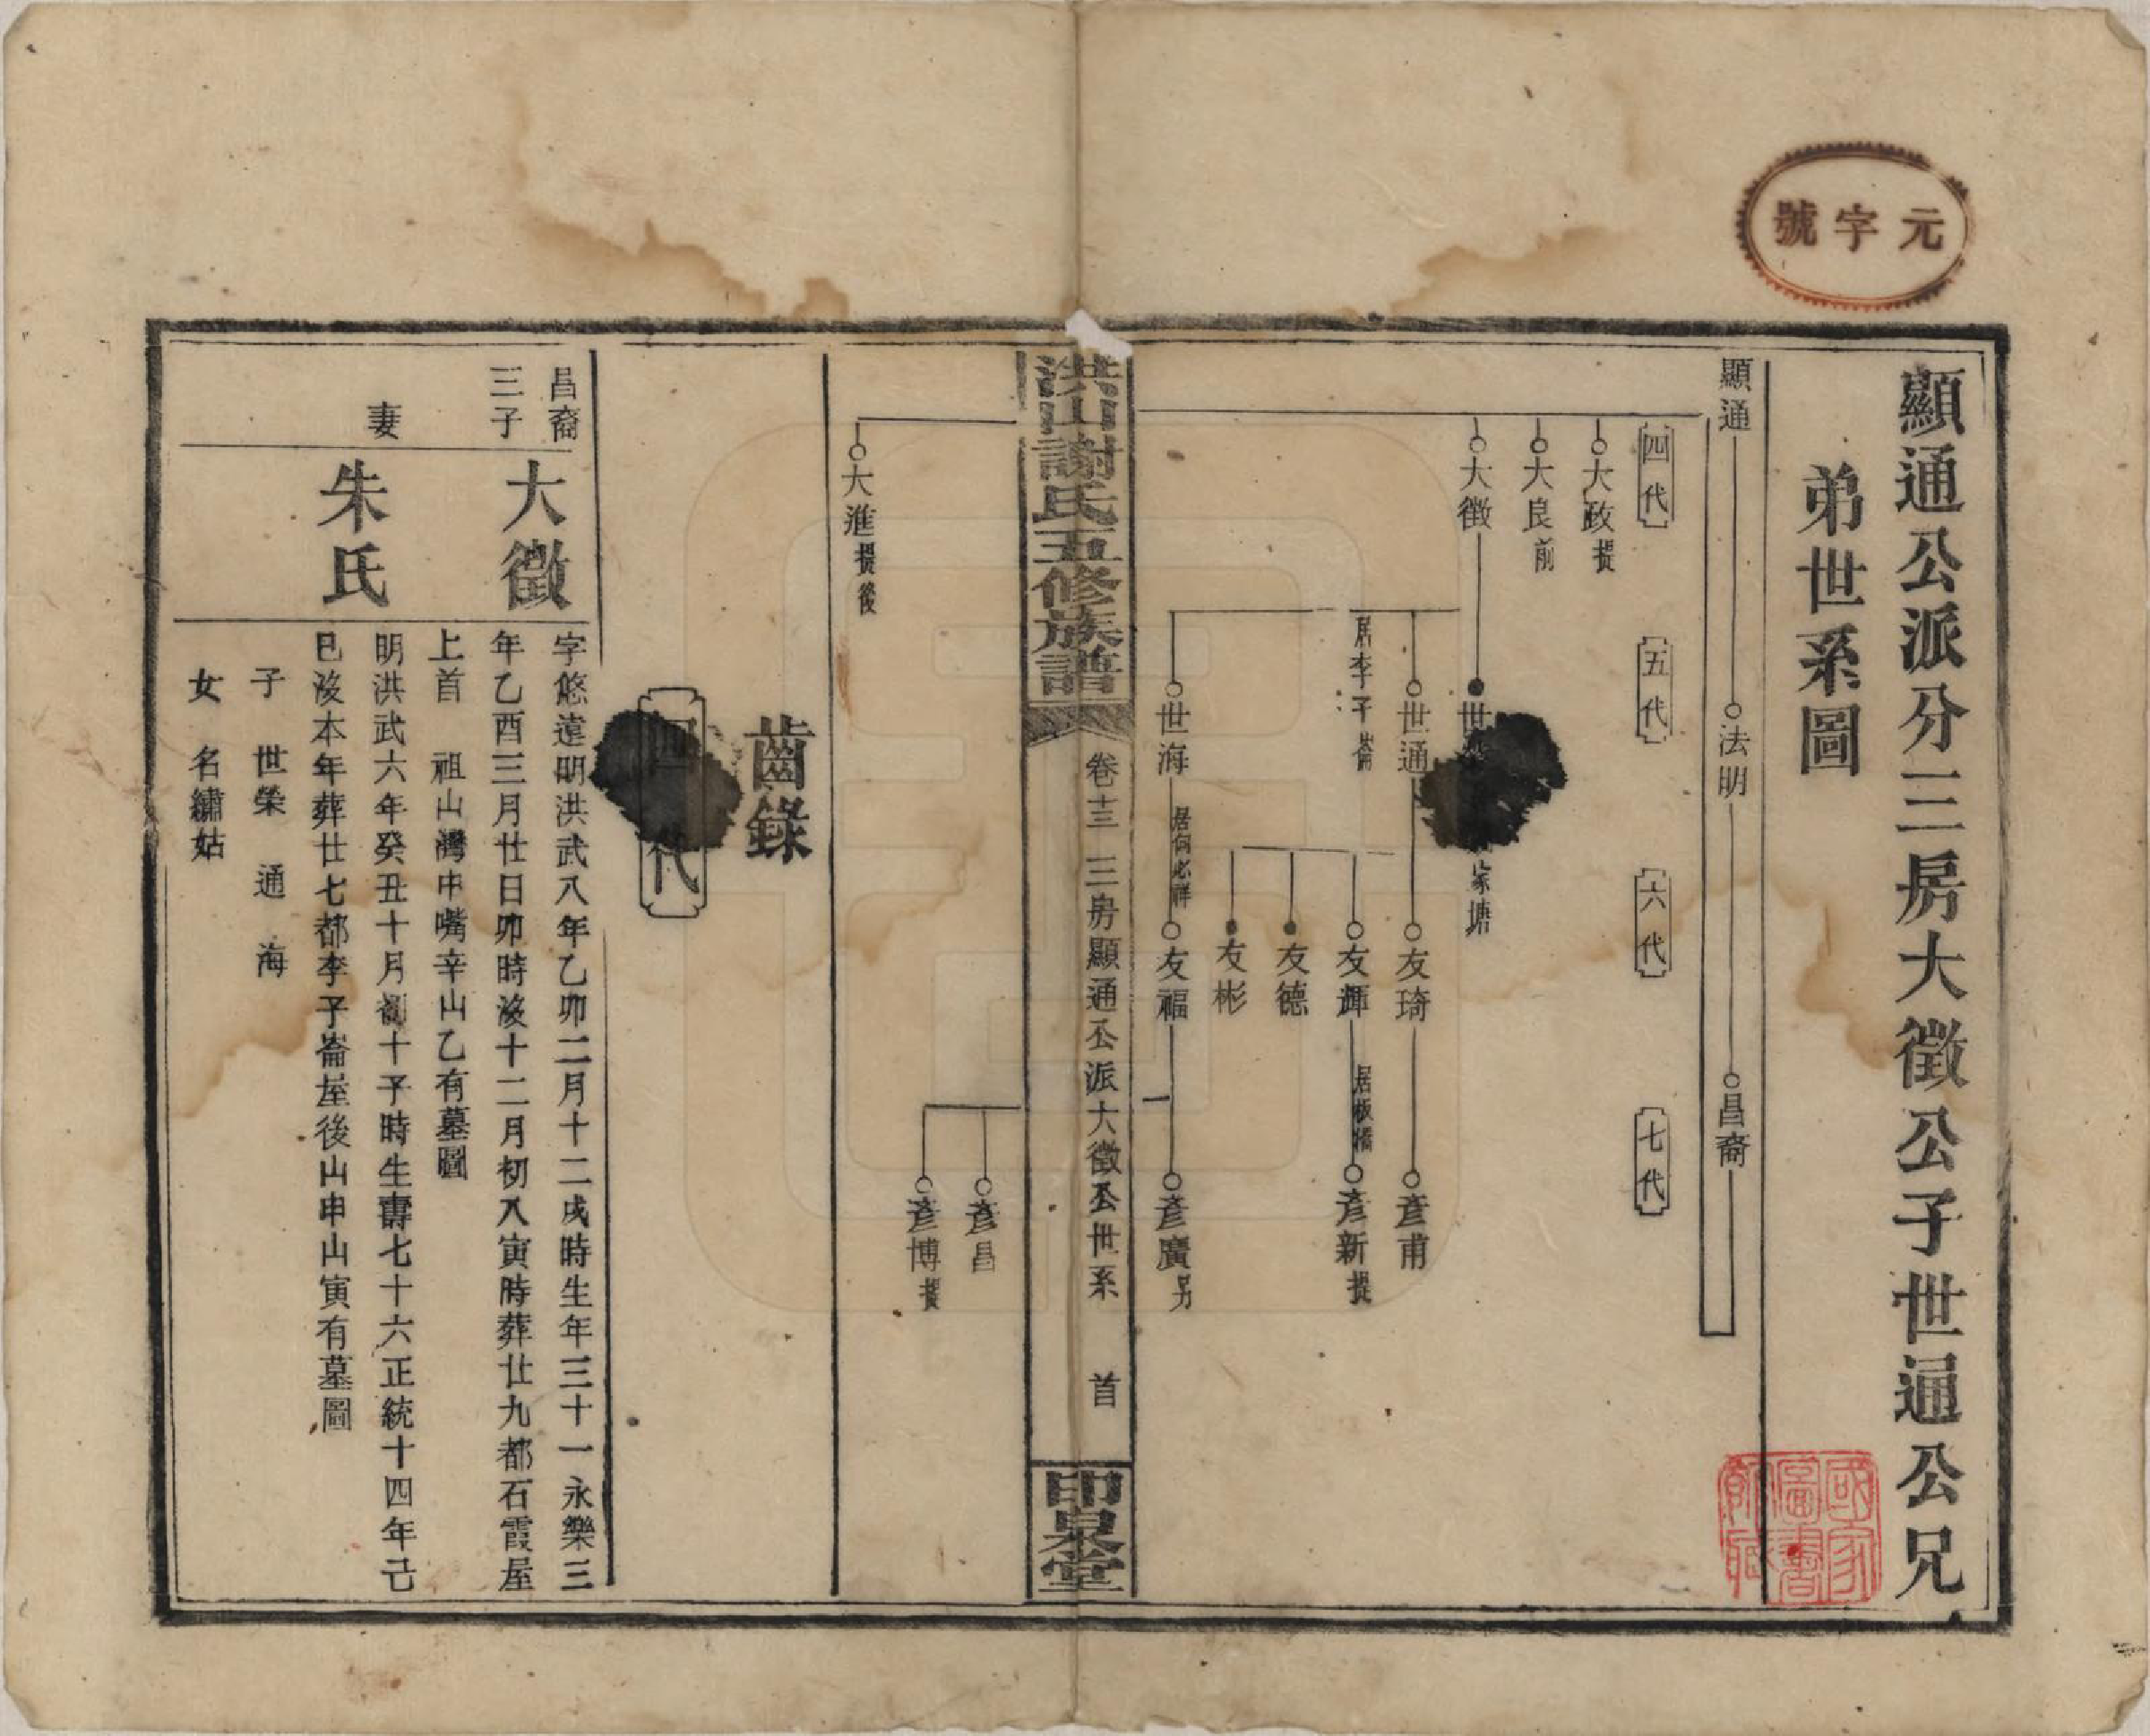 元字號
顯通公派分三房大徵公子世通公兄
弟世系圖
顯通
法明
昌裔
四代
五代
六代
七代
大政 提
大良 前
大徵
世
家塘
世通
居李子崙
友琦
彥甫
友輝
居板橋
彥新 提
友德
友彬
世海
居何必祥
友福
彥廣 另
洪山謝氏五修族譜
卷十三 三房顯通公派大徵公世系
首
印泉堂
彥昌
彥博 提
大進 提後
齒錄
四代
昌裔
三子
大徵
字悠遠明洪武八年乙卯二月十二戌時生年三十一永樂三
年乙酉三月廿日卯時沒十二月初八寅時葬廿九都石霞屋
上首 祖山灣中嘴辛山乙有墓圖
妻
朱氏
明洪武六年癸丑十月初十子時生壽七十六正統十四年己
巳沒本年葬廿七都李子崙屋後山申山寅有墓圖
子 世榮 通 海
女 名繡姑
國家
圖書
館藏